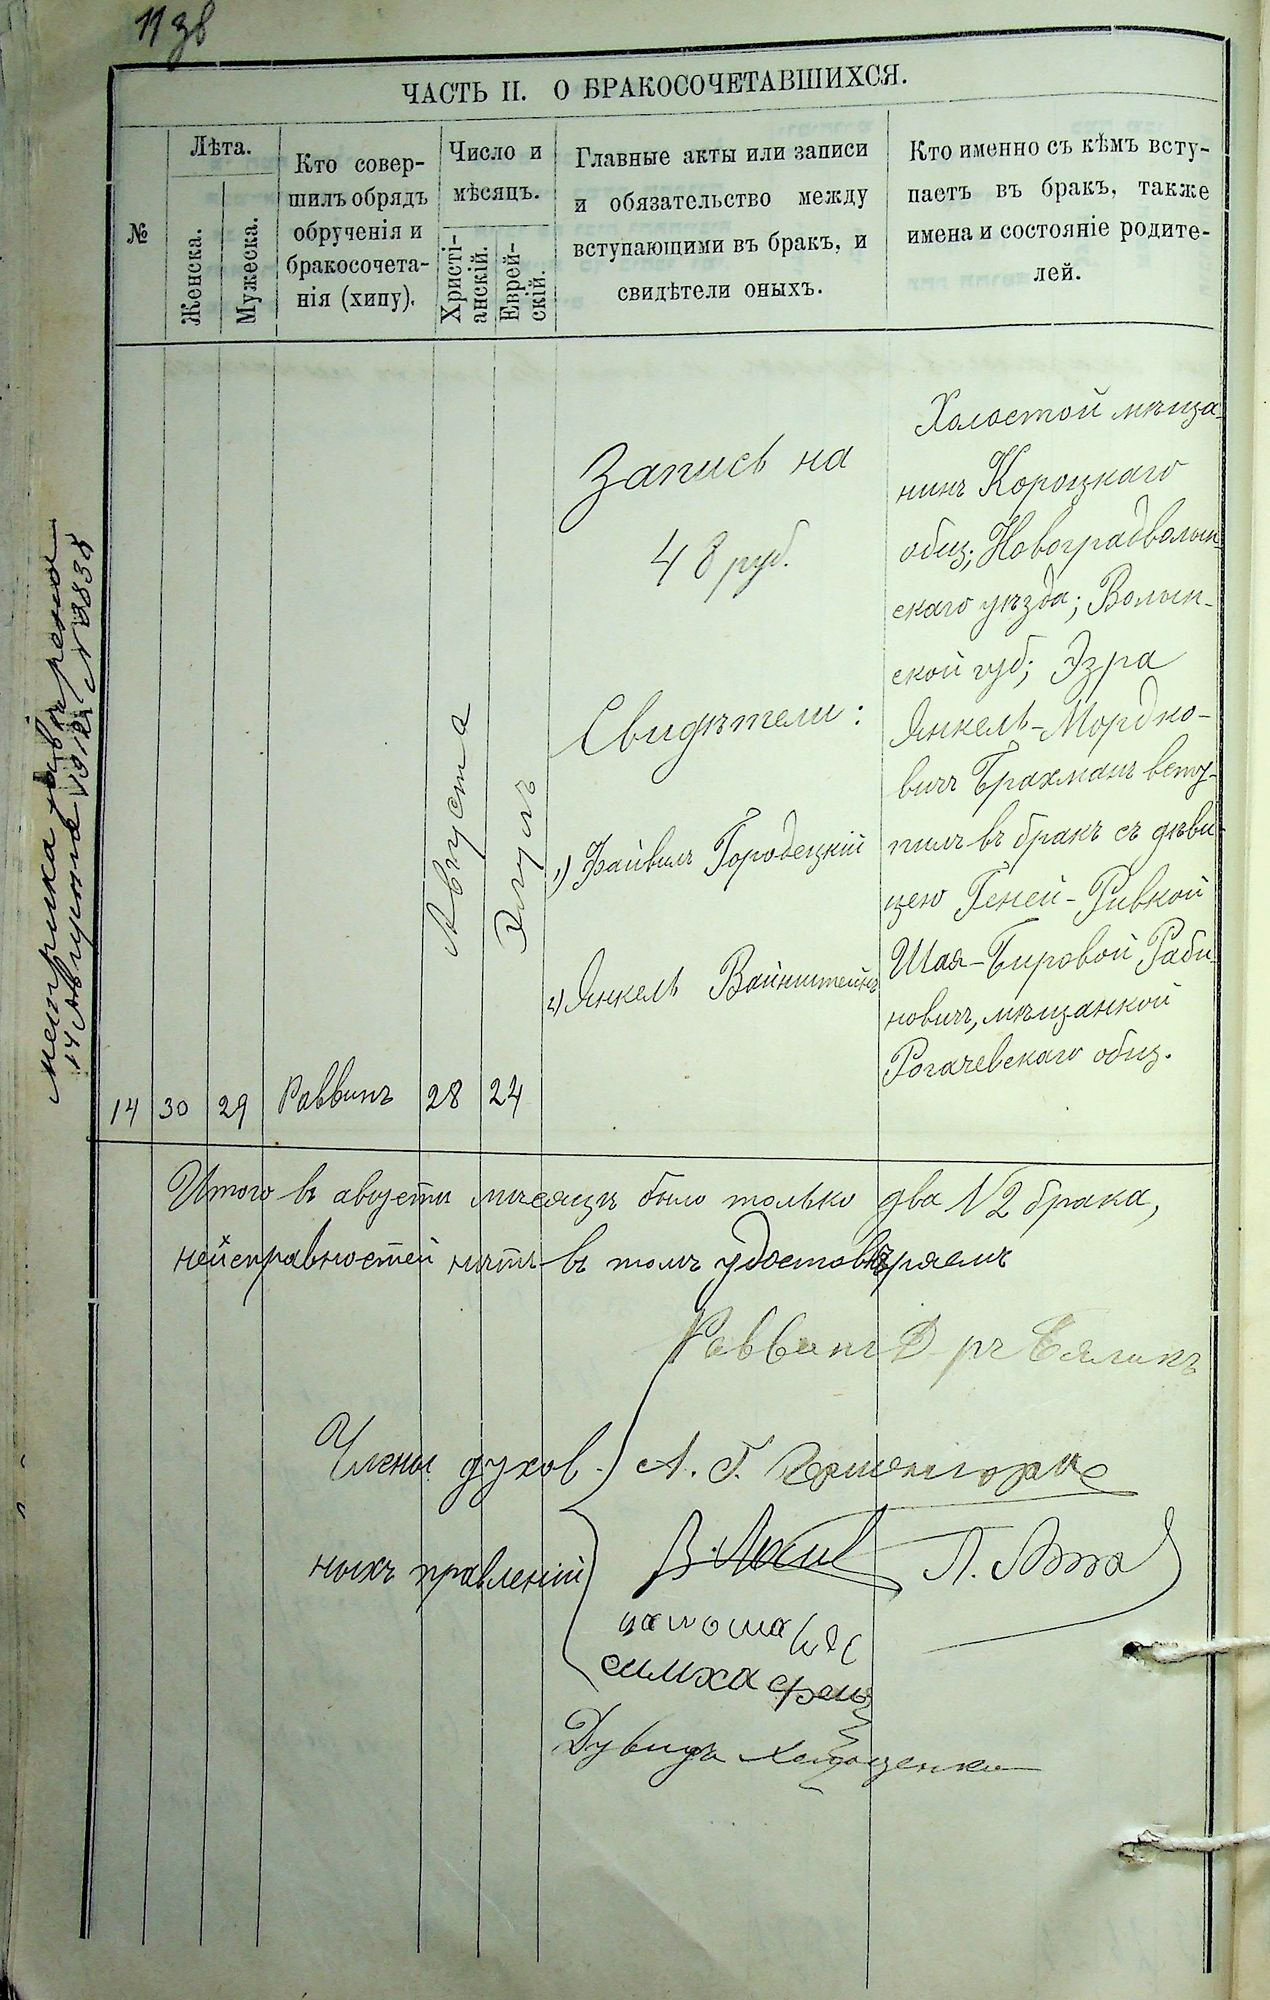 11 38
ЧАСТЬ II. О БРАКОСОЧЕТАВШИХСЯ.
№
Лѣта.
Женска.
Мужеска.
Кто совер-
шилъ обрядъ
обрученія и
бракосочета-
нія (хипу).
Число и
мѣсяцъ.
Христі-
анскій.
Еврей-
скій.
Главные акты или записи
и обязательство между
вступающими въ бракъ, и
свидѣтели оныхъ.
Кто именно съ кѣмъ всту-
паетъ въ бракъ, также
имена и состояніе родите-
лей.
14
30
29
Раввинъ
Августа
28
Элулъ
24
Запись на
48 руб.
Свидѣтели:
1) Файвилъ Городецкій
2) Янкель Вайнштейнъ
Холостой мѣща-
нинъ Корецкаго
общ; Новоградволын-
скаго уѣзда; Волын-
ской губ; Эзра
Янкель-Мордко-
вичъ Брахманъ всту-
пилъ въ бракъ съ дѣви-
цею Геней-Ривкой
Шая-Бировой Раби-
новичъ, мѣщанкой
Рогачевскаго общ.
метрика
14 Августа 1912 N 2838
Итого въ августѣ мѣсяцѣ было только два N2 брака,
неисправностей нѣтъ въ томъ удостовѣряемъ
Раввинъ Д-ръ
Члены духов-
ныхъ правленій
А. Г.
В.
Л.
симха
Дувидъ